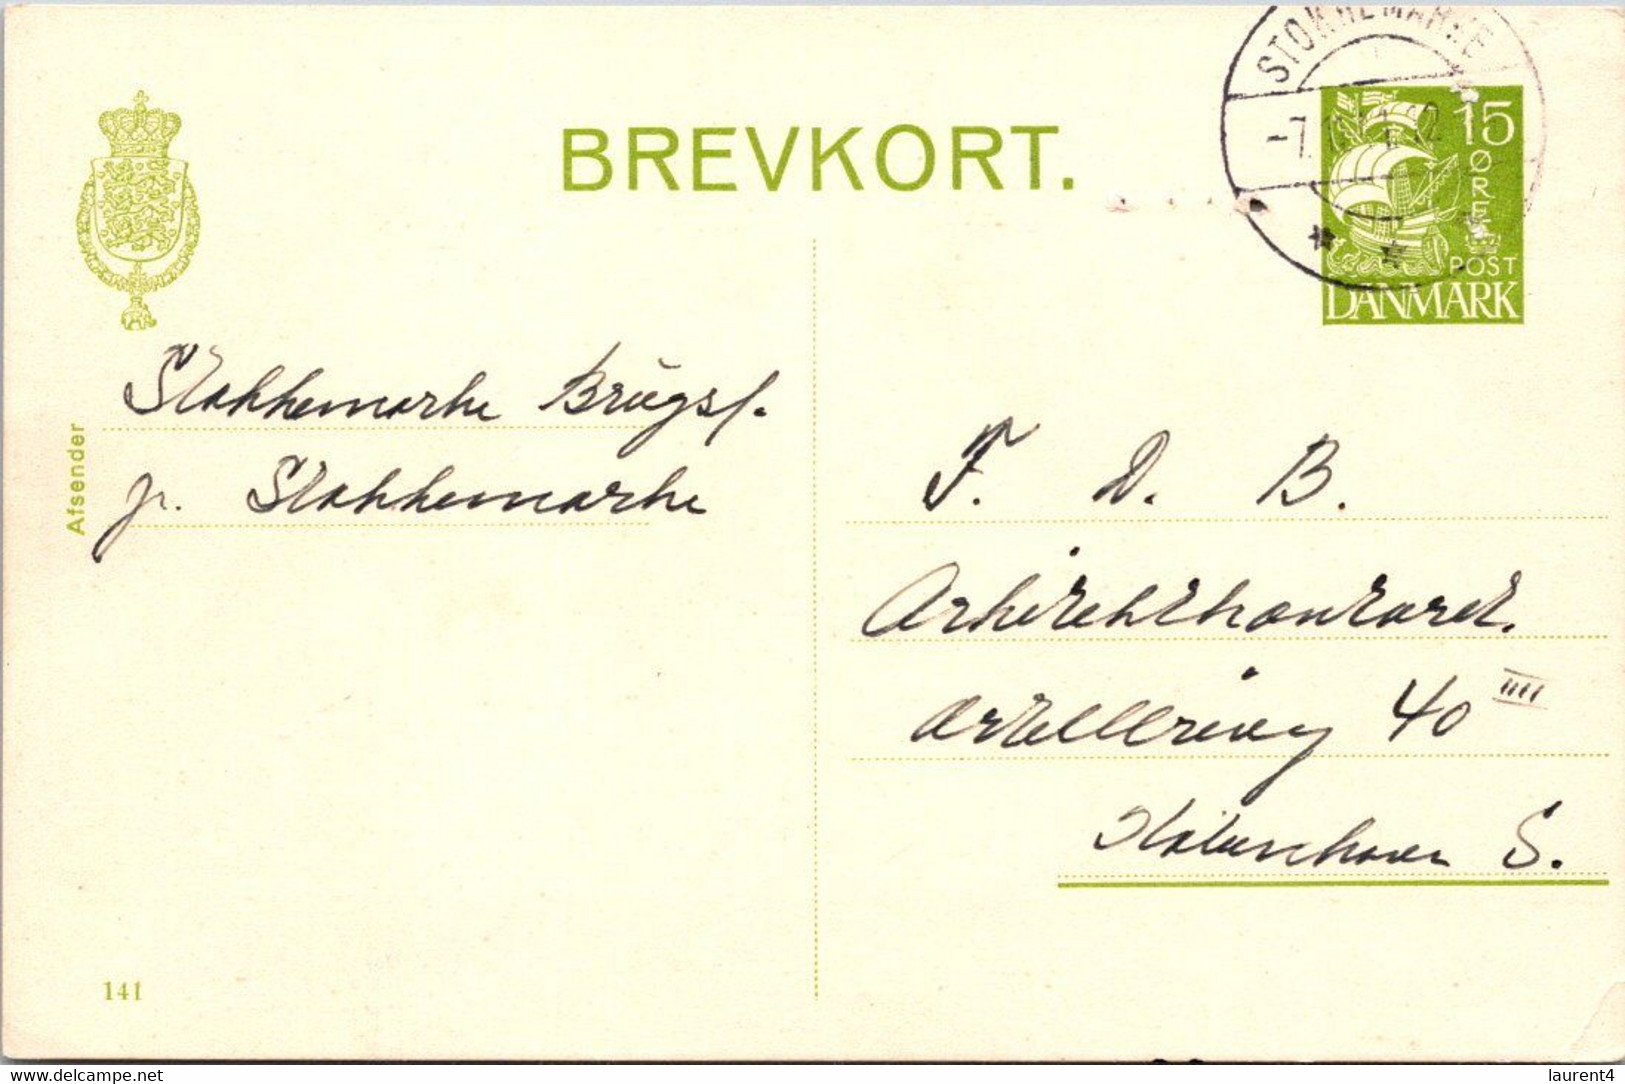 BREVKORT.
STOKKEMARKE
15
ØRE
POST
DANMARK
Afsender
Stokkemarke Brugsf.
pr. Stokkemarke
F. D. B.
Arkitektkontoret.
Artillerivej 40 IIII
København S.
141
www.delcampe.net
laurent4